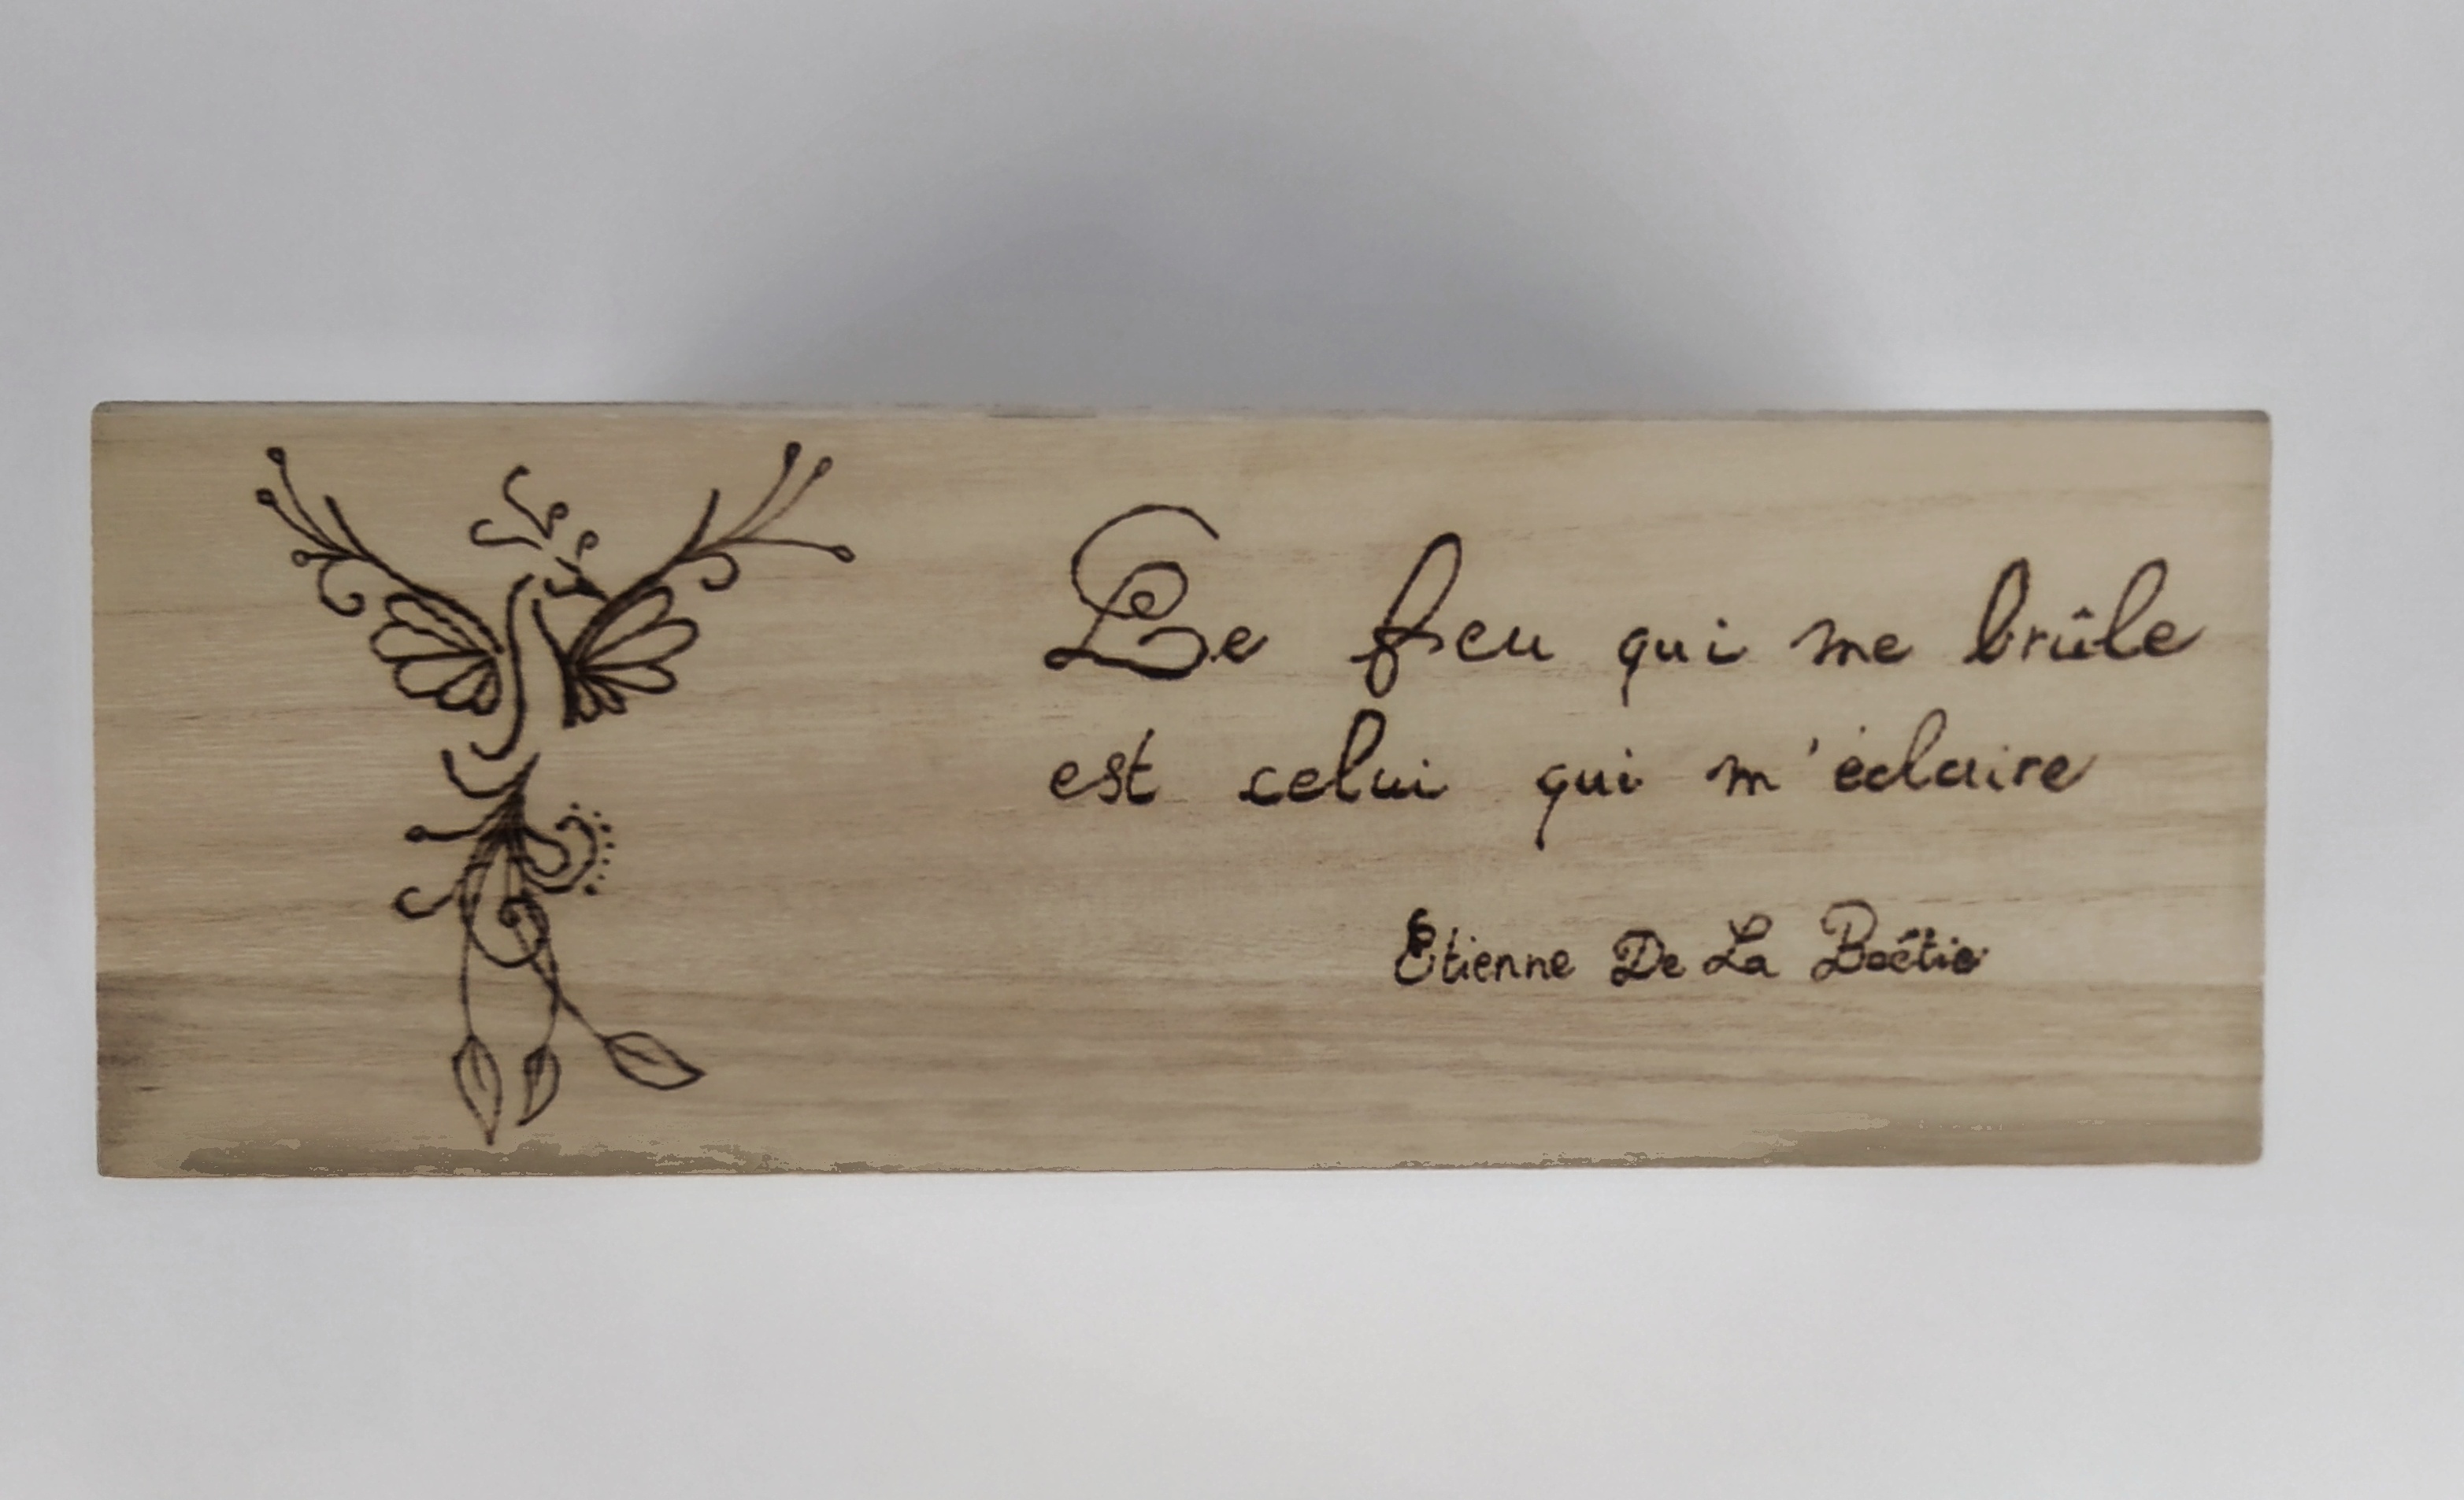 Le feu qui me brûle
est celui qui m'éclaire
Etienne De La Boétie